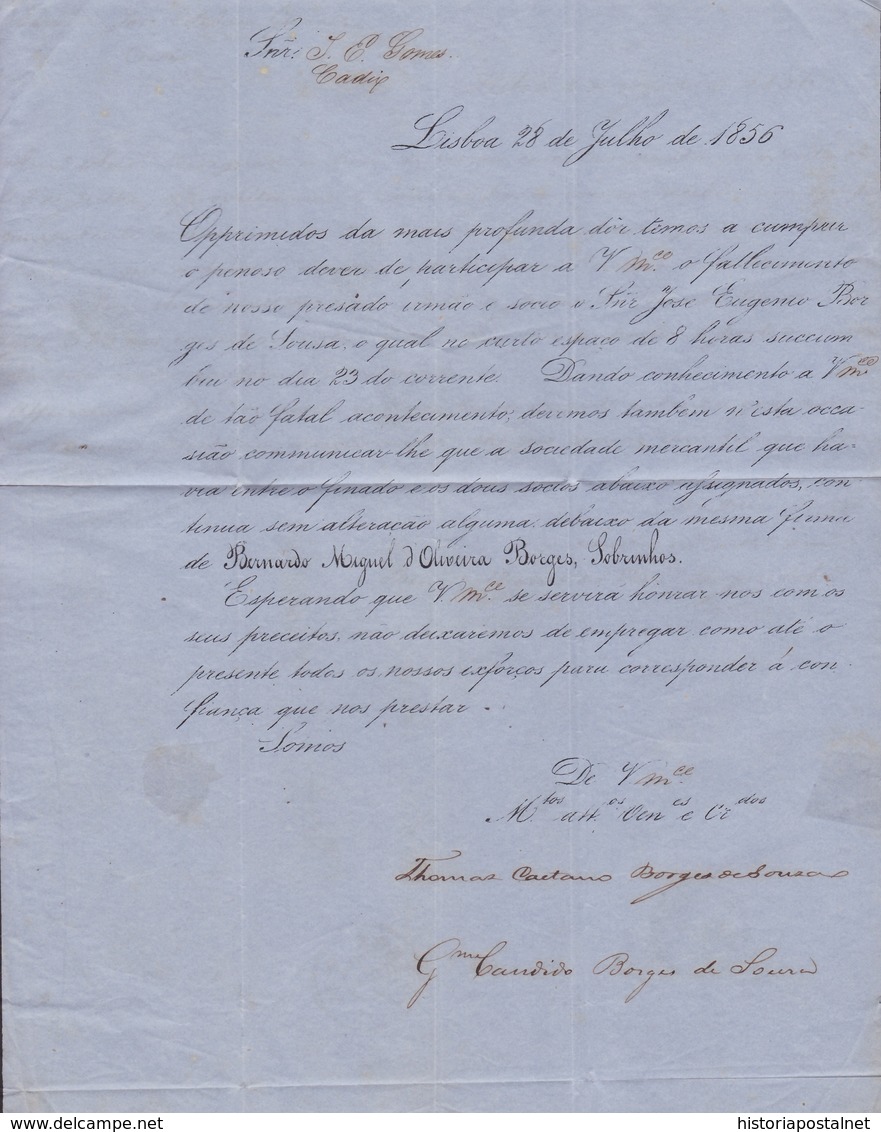 Snr. J. E. Gomes.
Cadix
Lisboa 28 de Julho de 1856
Opprimidos da mais profunda dôr temos a cumprir
o penoso dever de participar a V mce. o fallecimento
de nosso presado irmão e socio o Snr José Eugenio Bor
ges de Sousa, o qual no curto espaço de 8 horas succum
biu no dia 23 do corrente. Dando conhecimento a V mce
de tão fatal acontecimento; devemos também n'esta occa-
sião communicar-lhe que a sociedade mercantil que ha-
via entre o finado e os dous socios abaixo assignados, con
tinua sem alteração alguma debaixo da mesma firma
de Bernardo Miguel d'Oliveira Borges, Sobrinhos.
Esperando que V. mce. se servirá honrar-nos com os
seus preceitos, não deixaremos de empregar como até o
presente todos os nossos exforços para corresponder á con
fiança que nos prestar.
Somos
De V mce.
M.tos att.os Ven.es e Cr.dos
Thomaz Caetano Borges de Sousa
Gme Candido Borges de Sousa
delcampe.net
historiapostalnet